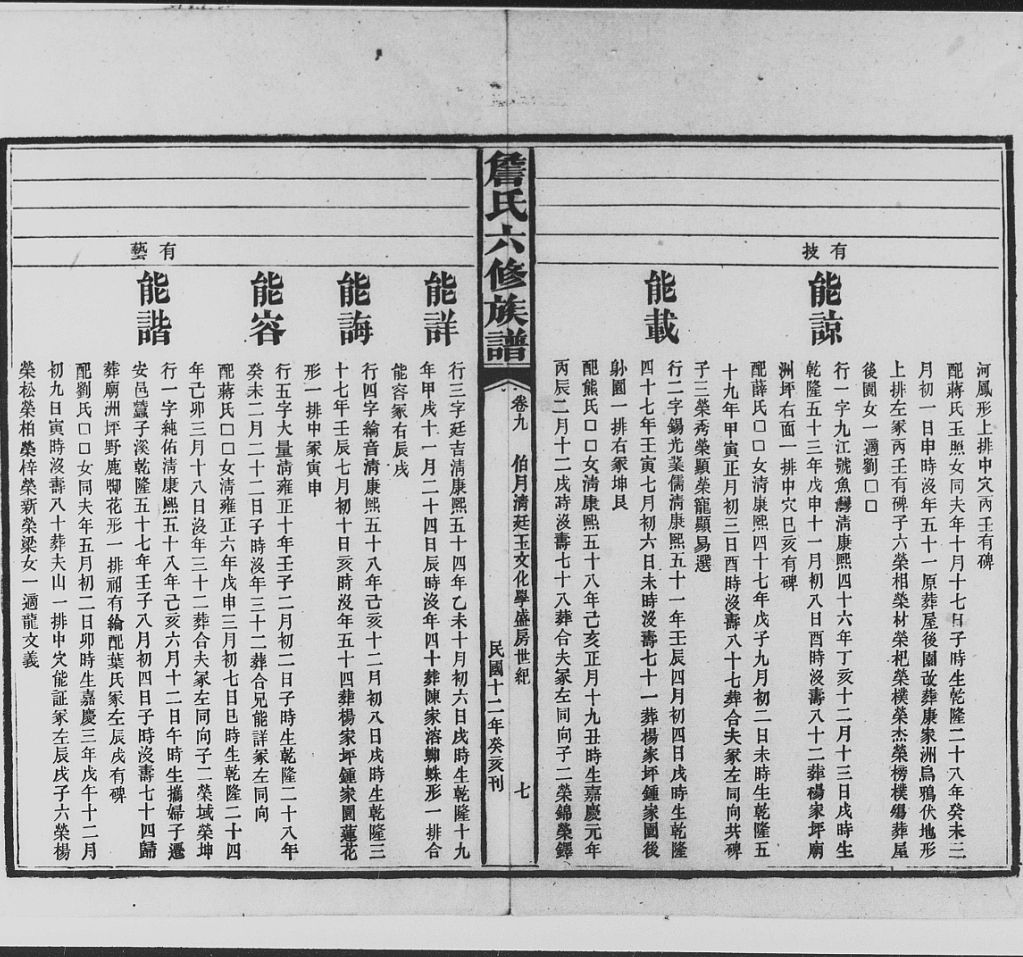 河鳳形上排中穴丙壬有碑
配蔣氏玉照女同夫年十月十七日子時生乾隆二十八年癸未三
月初一日申時沒年五十一原葬屋後園改葬康家洲烏鴉伏地形
上排左冢丙壬有碑子六榮相榮材榮杞榮樸榮杰榮楞樸殤葬屋
後園女一適劉□□
有技
能諒
行一字九江號魚灣清康熙四十六年丁亥十二月十三日戌時生
乾隆五十三年戊申十一月初八日酉時沒壽八十二葬楊家坪廟
洲坪右面一排中穴巳亥有碑
配薛氏□□女清康熙四十七年戊子九月初二日未時生乾隆五
十九年甲寅正月初三日酉時沒壽八十七葬合夫冢左同向共碑
子三榮秀榮顯榮寵顯易選
能載
行二字錫光業儒清康熙五十一年壬辰四月初四日戌時生乾隆
四十七年壬寅七月初六日未時沒壽七十一葬楊家坪鍾家園後
躲園一排右冢坤艮
配熊氏□□女清康熙五十八年己亥正月十九丑時生嘉慶元年
丙辰二月十二戌時沒壽七十八葬合夫冢左同向子二榮錦榮鐸
詹氏六修族譜
卷九 伯月清廷玉文化學盛房世紀 七
民國十二年癸亥刊
能詳
行三字廷吉清康熙五十四年乙未十月初六日戌時生乾隆十九
年甲戌十一月二十四日辰時沒年四十葬陳家溶蜘蛛形一排合
能容冢右辰戌
能誨
行四字綸音清康熙五十八年己亥十二月初八日戌時生乾隆三
十七年壬辰七月初十日亥時沒年五十四葬楊家坪鍾家園蓮花
形一排中冢寅申
能容
行五字大量清雍正十年壬子二月初二日子時生乾隆二十八年
癸未二月二十二日子時沒年三十二葬合兄能詳冢左同向
配蔣氏□□女清雍正六年戊申三月初七日巳時生乾隆二十四
年己卯三月十八日沒年三十二葬合夫冢左同向子二榮域榮坤
有藝
能諧
行一字純佑清康熙五十八年己亥六月十二日午時生攜婦子遷
安邑蠶子溪乾隆五十七年壬子八月初四日子時沒壽七十四歸
葬廟洲坪野鹿啣花形一排祔有綸配葉氏冢左辰戌有碑
配劉氏□□女同夫年五月初二日卯時生嘉慶三年戊午十二月
初九日寅時沒壽八十葬夫山一排中穴能証冢左辰戌子六榮楊
榮松榮柏榮梓榮新榮梁女一適龍文義